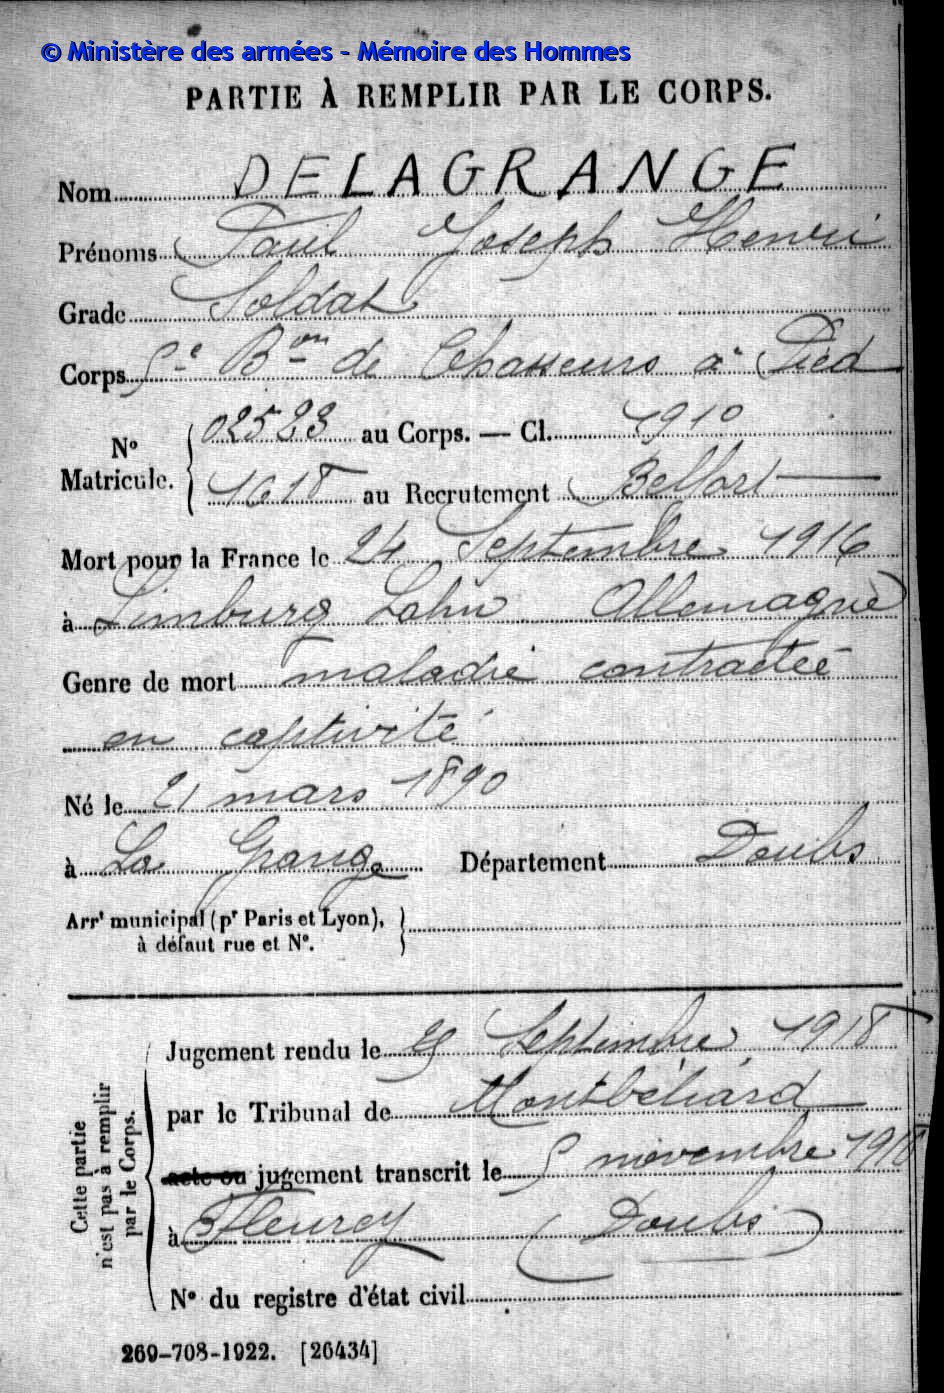 © Ministère des armées - Mémoire des Hommes
PARTIE À REMPLIR PAR LE CORPS.
Nom DELAGRANGE
Prénoms Paul Joseph Henri
Grade Soldat
Corps 5e Bon de Chasseurs à Pied
No Matricule. 02523 au Corps. — Cl. 1910
1618 au Recrutement Belfort
Mort pour la France le 24 Septembre 1916
à Limburg Lahn Allemagne
Genre de mort maladie contractée
en captivité
Né le 21 mars 1890
à La Grange Département Doubs
Arrt municipal (pr Paris et Lyon),
à défaut rue et No.
Cette partie
n'est pas à remplir
par le Corps.
Jugement rendu le Septembre 1918
par le Tribunal de Montbéliard
acte ou jugement transcrit le 5 novembre 1918
à Fleurey (Doubs)
No du registre d'état civil
269-708-1922. [26434]